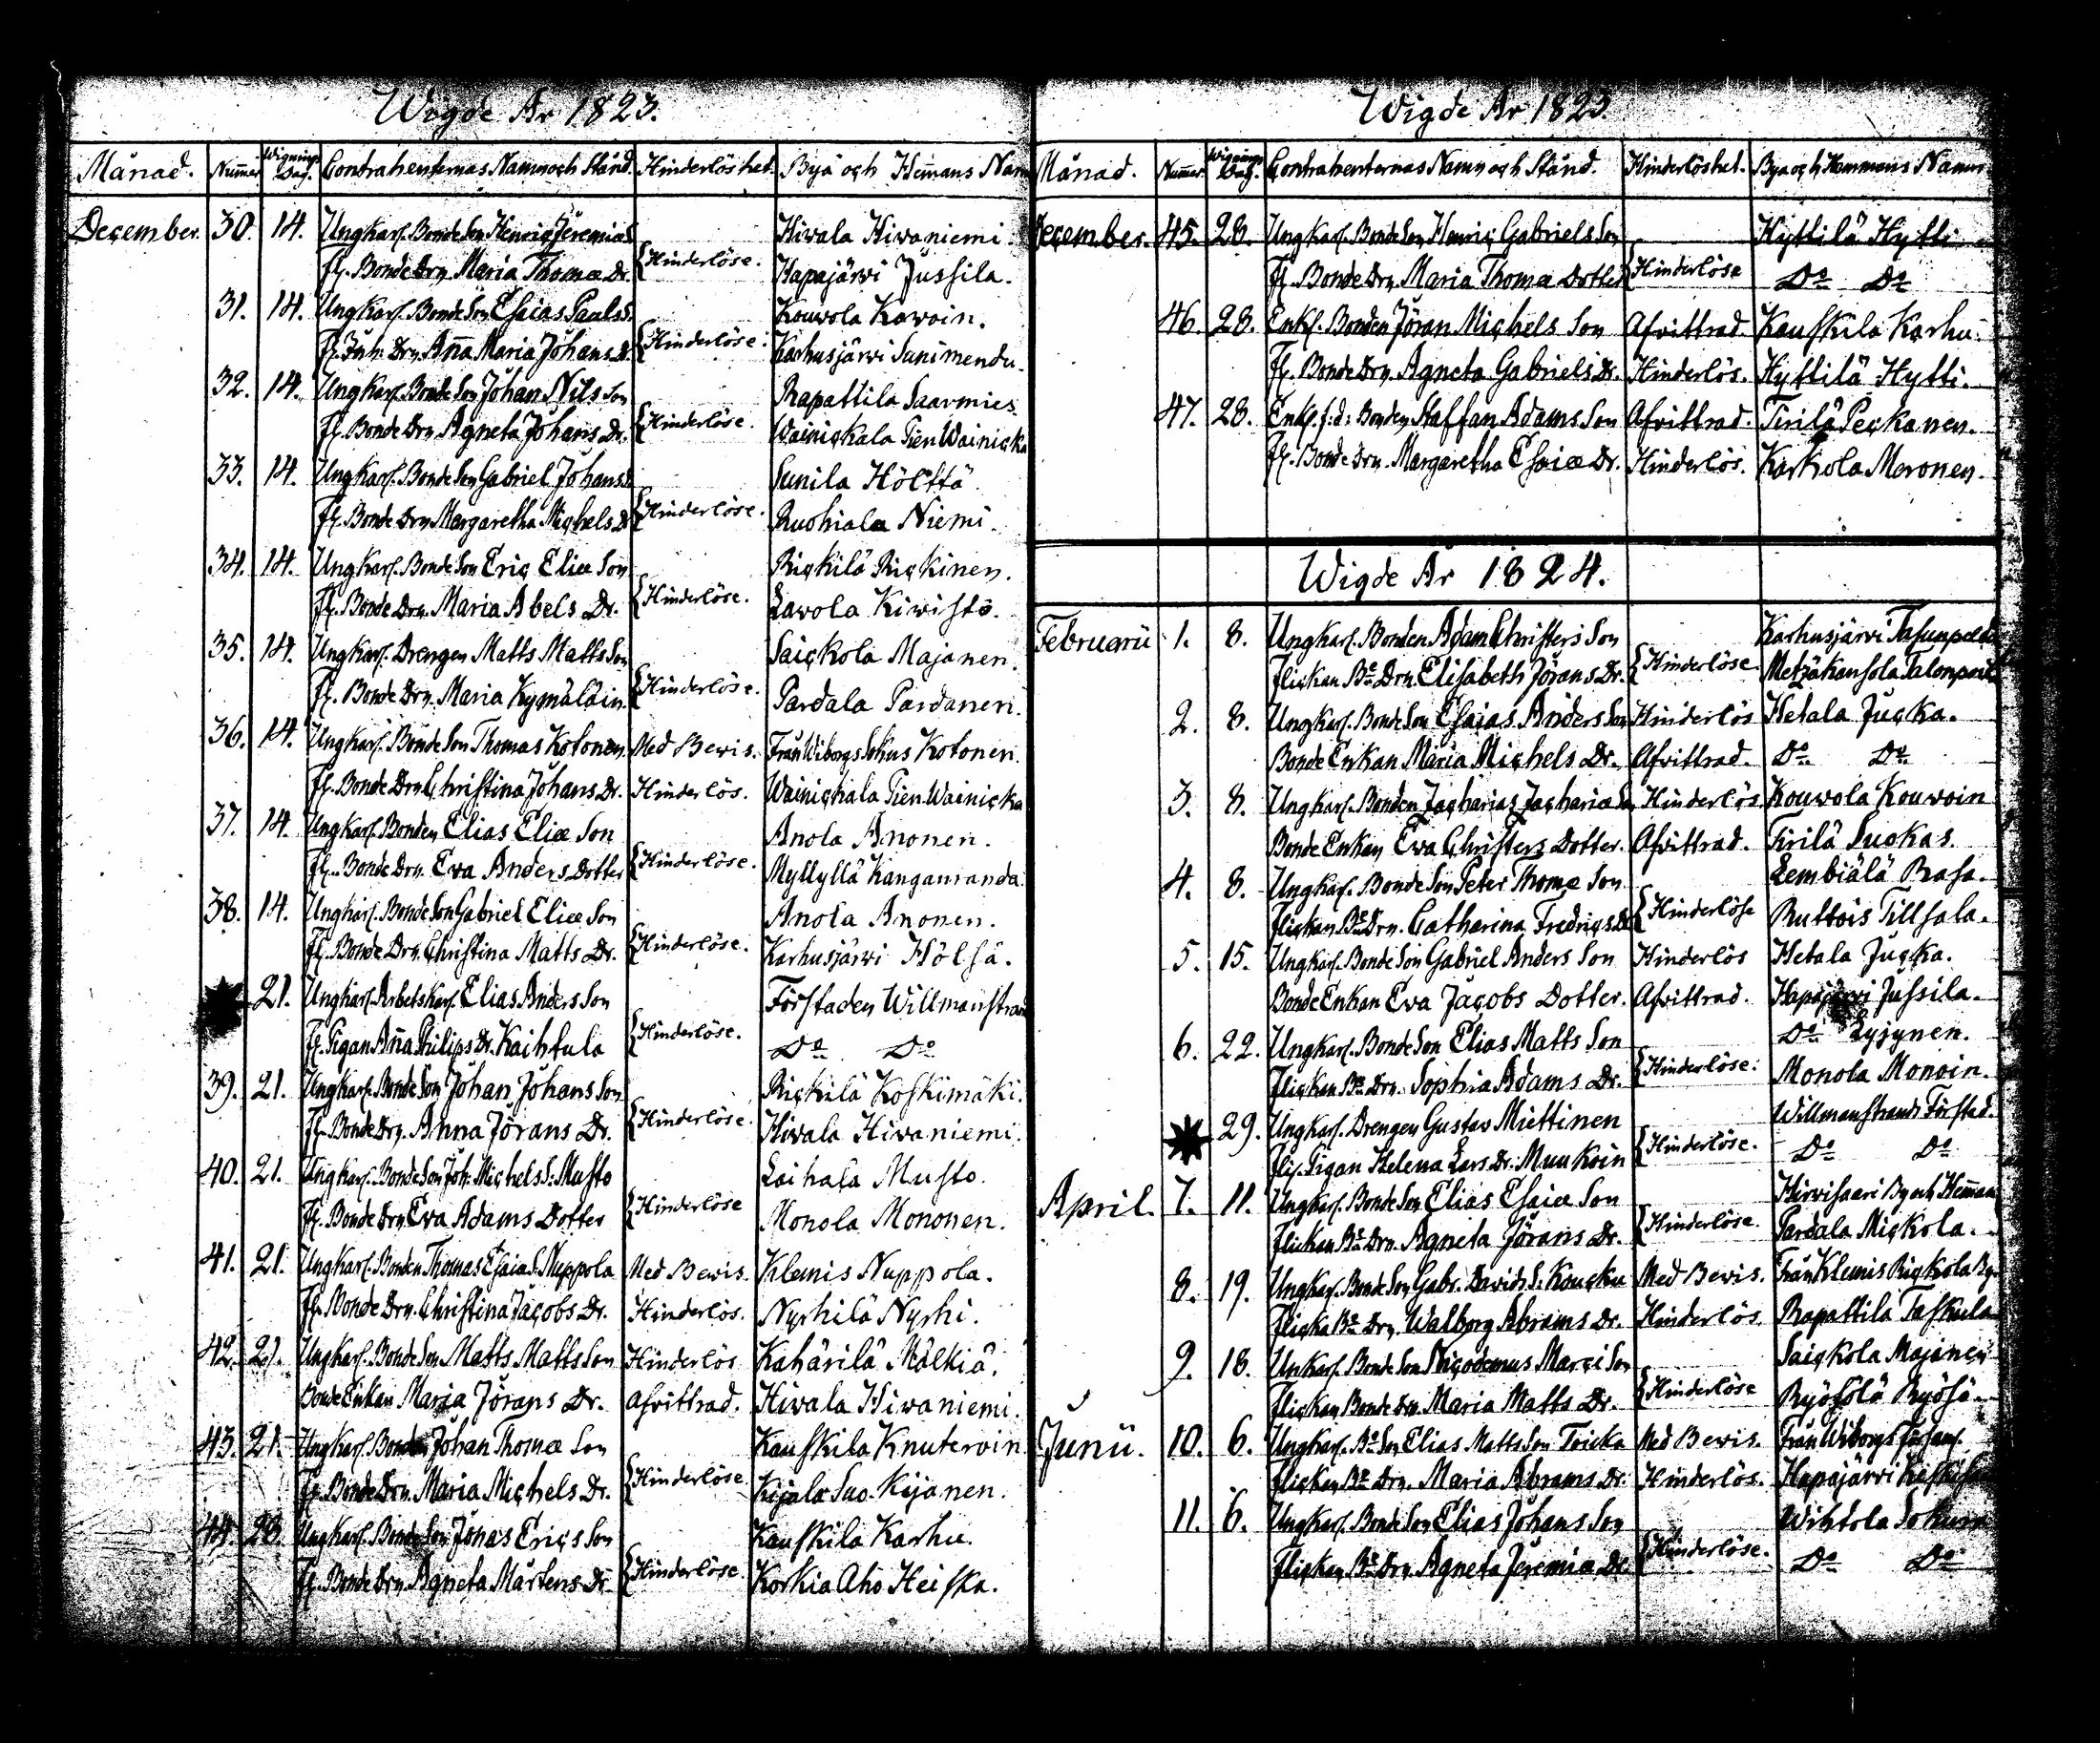 Wigde År 1823.
Månad. Num̄er Wignings Dag. Contrahenternas Namn och Stånd. Hinderlöshet. Byä och Hem̄ans Nam
December. 30. 14. Ungkarl. Bonde Son Henric Jeremiæ S. Hiwala Hiwaniemi.
fl. Bonde Drn. Maria Thomæ Dr. {Hinderlöse. Hapajärwi Jussila.
31. 14. Ungkarl. Bonde Son Esaias Pauls S. Kouwola Kowoin.
fl. Inh: Drn. Ana Maria Johans D. {Hinderlöse. Karhusjärwi Sunimendu.
32. 14. Ungkarl. Bonde Son Johan Nils Son Rapattila Saarmies.
fl. Bonde Drn. Agneta Johans Dr. {Hinderlöse. Wainickala Pien Wainicka
33. 14. Ungkarl. Bonde Son Gabriel Johans S. Sunila Hölttä.
fl. Bonde Drn. Margaretha Michels D {Hinderlöse. Ruohiala Niemi.
34. 14. Ungkarl. Bonde Son Eric Eliæ Son Rickilä Rickinen.
fl. Bonde Drn. Maria Abels Dr. {Hinderlöse. Lavola Kiwistö.
35. 14. Ungkarl. Drengen Matts Matts Son Saickola Majanen.
fl. Bonde Drn. Maria Kymäläin. {Hinderlöse. Pardala Pardanen.
36. 14. Ungkarl. Bonde Son Thomas Kotonen. Med Bewis. Från Wiborgs Sokns Kotonen.
fl. Bonde Drn. Christina Johans Dr. Hinderlös. Wainickala Pien Wainicka
37. 14. Ungkarl. Bonden Elias Eliæ Son Anola Anonen.
fl. Bonde Drn. Eva Anders Dotter {Hinderlöse. Myllyllä Kanganranda.
38. 14. Ungkarl. Bonde Son Gabriel Eliæ Son Anola Anonen.
fl. Bonde Drn. Christina Matts Dr. {Hinderlöse. Karhusjärwi Hölsä.
21. Ungkarl. Arbetskarl. Elias Anders Son Förstaden Willmanstrand
fl. Pigan Ana Philips Dr. Kaihtula {Hinderlöse. Do Do
39. 21. Ungkarl. Bonde Son Johan Johans Son Rickilä Koskimäki.
fl. Bonde Drn. Anna Jörans Dr. {Hinderlöse. Hivala Hivaniemi.
40. 21. Ungkarl. Bonde Son Joh: Michels S: Musto Laihala Musto.
fl. Bonde Drn. Eva Adams Dotter {Hinderlöse Monola Mononen.
41. 21. Ungkarl. Bonden Thomas Esaiæ S. Nuppola Med Bewis. Klemis Nuppola.
fl. Bonde Drn. Christina Jacobs Dr. Hinderlös. Nyrhilä Nyrhi.
42. 21. Ungkarl. Bonde Son Matts Matts Son Hinderlös Kahärilä Mälkiä.
Bonde Enkan Maria Jörans Dr. Afvittrad. Hivala Hivaniemi.
43. 21. Ungkarl. Bonden Johan Thomæ Son Kauskila Knuteroin
fl. Bonde Drn. Maria Michels Dr. {Hinderlöse. Kijala Suo-Kijanen.
44. 28. Ungkarl. Bonde Son Jonas Erics Son Kauskila Karhu.
fl. Bonde Drn. Agneta Mårtens Dr. {Hinderlöse. Korkia Aho Heiska.
Wigde År 1823.
Månad. Num̄er. Wignings Dag. Contrahenternas Namn och Stånd. Hinderlöshet. Bya och Hemmans Namn
December. 45. 28. Ungkarl. Bonde Son Henric Gabriels Son Hyttilä Hytti
fl. Bonde Drn. Maria Thomæ Dotter {Hinderlöse Do Do
46. 28. Enkl. Bonden Jöran Michels Son Afvittrad. Kauskila Karhu.
fl. Bonde Drn. Agneta Gabriels Dr. Hinderlös. Hyttilä Hytti.
47. 28. Enkl. f:d: Bonden Staffan Adams Son Afvittrad. Tirilä Peckanen.
fl. Bonde Drn. Margaretha Esaiæ Dr. Hinderlös. Karkola Moronen.
Wigde År 1824.
Februarii 1. 8. Ungkarl. Bonden Adam Christers Son Karhusjärvi
Flickan Be Drn. Elisabeth Jörans Dr. {Hinderlöse. Metzäkansola Talonpoik
2. 8. Ungkarl. Bonde Son Esaias Anders Son Hinderlös Hetala Jucka.
Bonde Enkan Maria Michels Dr. Afvittrad. Do Do
3. 8. Ungkarl. Bonden Zacharias Zachariæ Son Hinderlös Kouvola Kouvoin
Bonde Enkan Eva Christers Dotter. Afvittrad. Tirilä Suokas.
4. 8. Ungkarl. Bonde Son Peter Thome Son Lembiälä Rasa.
Flickan Be Drn. Catharina Fredrics D {Hinderlöse Ruttois Tillsala.
5. 15. Ungkarl. Bonde Son Gabriel Anders Son Hinderlös Hetala Jucka.
Bonde Enkan Eva Jacobs Dotter. Afvittrad. Hapajärvi Jussila.
6. 22. Ungkarl. Bonde Son Elias Matts Son Do Lyjynen.
Flickan Be Drn. Sophia Adams Dr. {Hinderlöse. Monola Monoin.
29. Ungkarl. Drengen Gustav Miettinen Willmanstrands Förstad.
Flic. Pigan Helena Lars. Dr. Muukoin {Hinderlöse. Do Do
April. 7. 11. Ungkarl. Bonde Son Elias Esaiæ Son Hirvisaari By och Heman
Flickan Be Drn. Agneta Jörans Dr. {Hinderlöse. Pardala Mickola.
8. 19. Ungkarl. Bonde Son Gabr. Davids S. Koucku Med Bevis. Från Klemis Rickola By.
Flicka Be Drn. Walborg Abrams Dr. Hinderlös. Rapattila Taskula
9. 18. Unkarl. Bonde Son Nicodemus Marci Son Saickola Majanen
Flickan Bonde Drn. Maria Matts Dr. {Hinderlöse Ryösölä Ryösä.
Junii. 10. 6. Ungkarl. Be Son Elias Matts Son Toicka Med Bevis. Från Wiborgs
Flickan Be Drn. Maria Abrams Dr. Hinderlös. Hapajärvi
11. 6. Ungkarl. Bonde Son Elias Johans Son Wihtola Sokura
Flickan Be Drn. Agneta Jeremiæ Dr. {Hinderlöse. Do Do